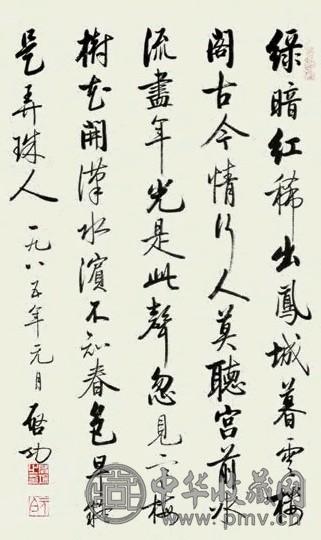 綠暗紅稀出鳳城暮雲樓
閣古今情行人莫聽宮前水
流盡年光是此聲忽見寒梅
樹花開漢水濱不知春色早疑
是弄珠人 一九八五年元月 啟功
中华收藏网
www.pmv.cn